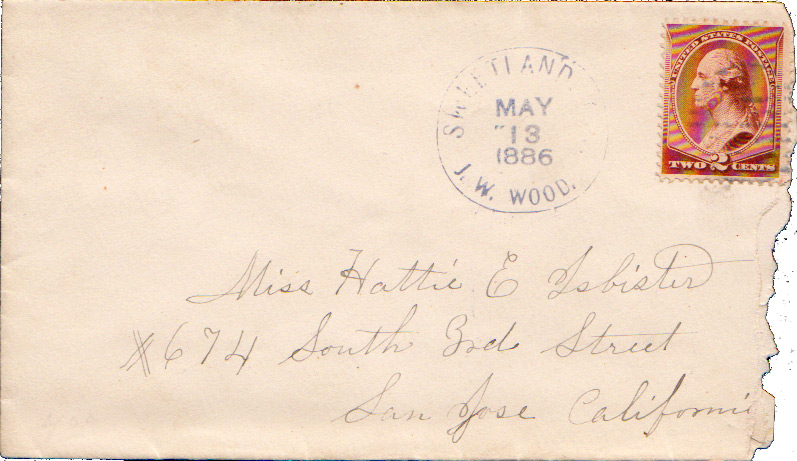 SWEETLAND
MAY
13
1886
J. W. WOOD.
UNITED STATES POSTAGE
TWO 2 CENTS
Miss Hattie E Isbister
#674 South 3rd Street
San Jose Californi